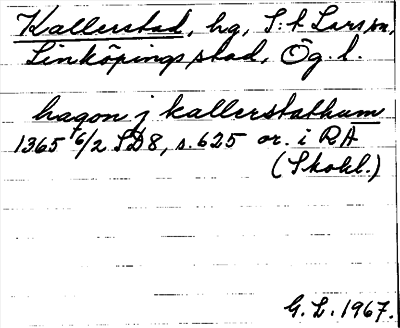 Kallerstad, hg, S:t Lars sn,
Linköpings stad, Ög. l.
hagon j kallerstathum
1365 16/2 SD8, s. 625 or. i RA
(Skokl.)
G. L. 1967.